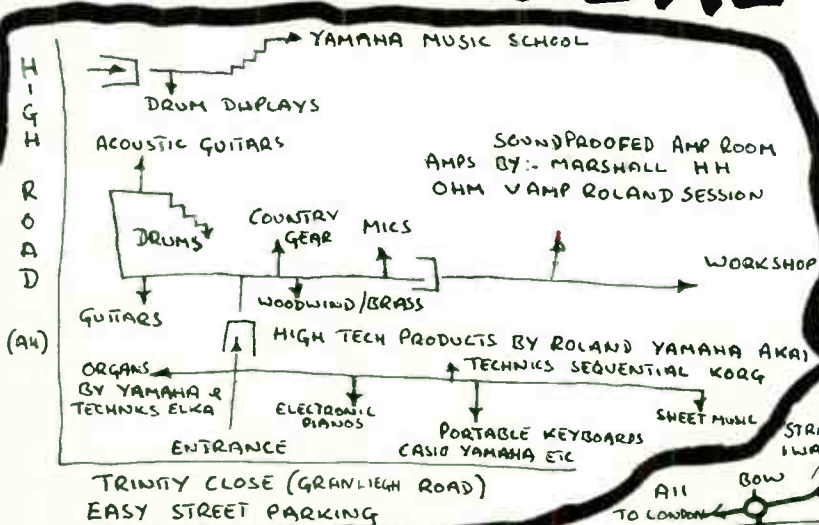 YAMAHA MUSIC SCHOOL
HIGH ROAD
(A11)
DRUM DISPLAYS
ACOUSTIC GUITARS
SOUNDPROOFED AMP ROOM
AMPS BY:- MARSHALL HH
OHM VAMP ROLAND SESSION
DRUMS
COUNTRY
GEAR
MICS
WORKSHOP
GUITARS
WOODWIND/BRASS
HIGH TECH PRODUCTS BY ROLAND YAMAHA AKAI
TECHNICS SEQUENTIAL KORG
ORGANS
BY YAMAHA &
TECHNICS ELKA
ELECTRONIC
PIANOS
PORTABLE KEYBOARDS
CASIO YAMAHA ETC
SHEET MUSIC
ENTRANCE
TRINITY CLOSE (GRANLIEGH ROAD)
EASY STREET PARKING
A11
TO LONDON
BOW